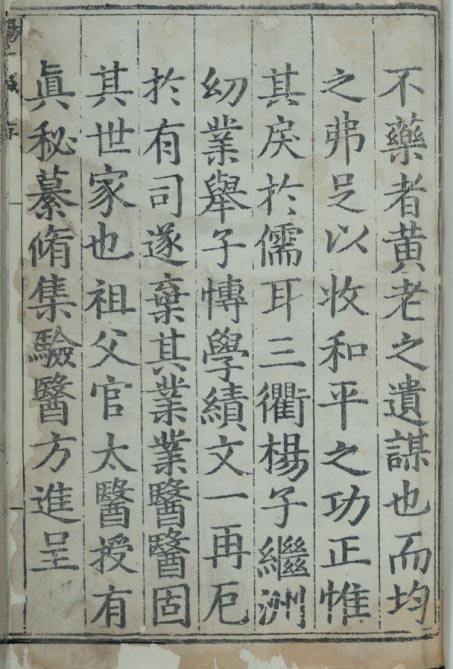 不藥者黄老之遺謀也而均
之弗足以收和平之功正惟
其戾於儒耳三衢楊子繼洲
幼業舉子愽學績文一再厄
於有司遂棄其業業醫醫固
其世家也祖父官太醫授有
真秘纂脩集驗醫方進呈